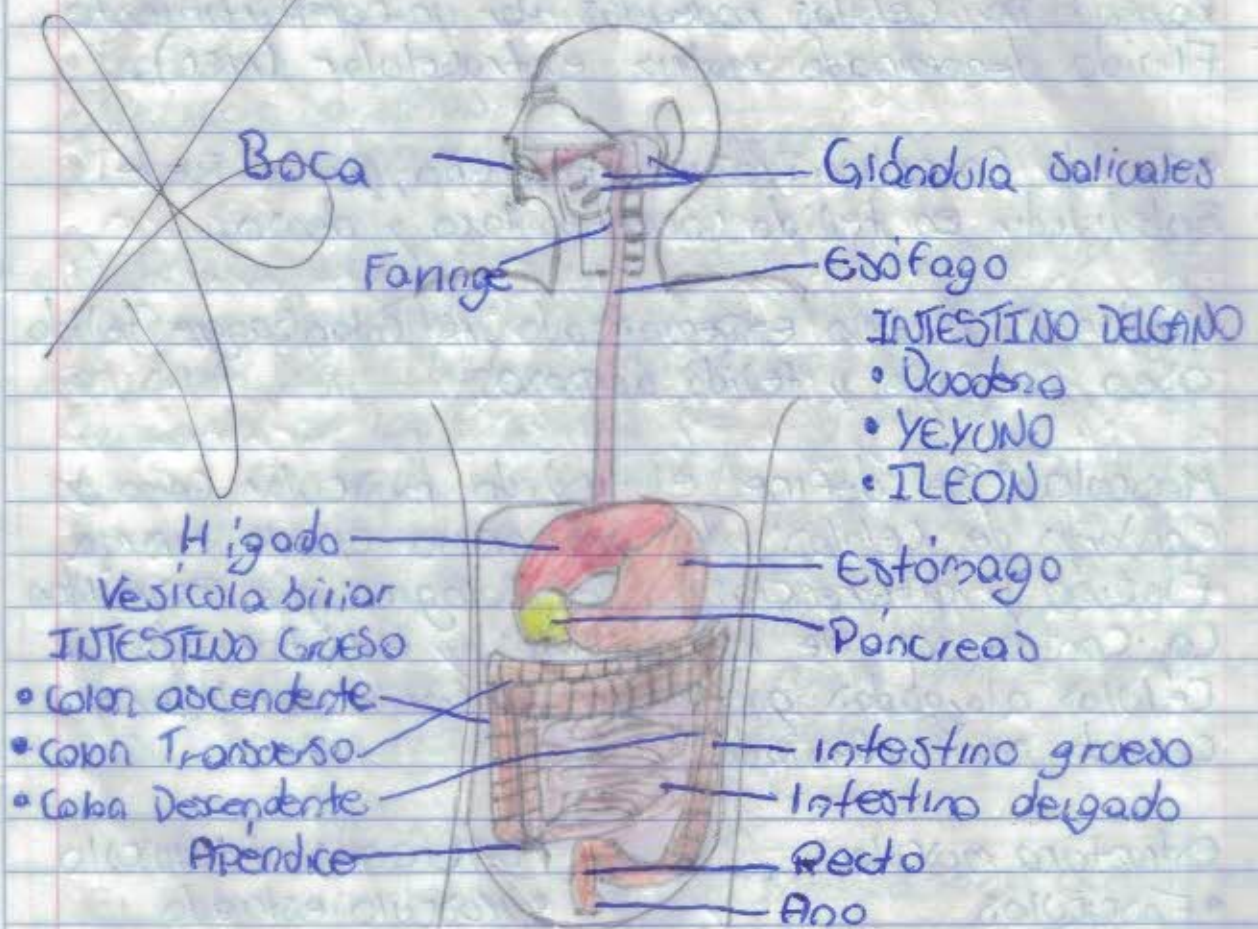 Boca
Glándula salivales
Faringe
Esófago
INTESTINO DELGANO
• Duodeno
• YEYUNO
• ILEON
Hígado
Vesícola biliar
INTESTINO GRUESO
• Colon ascendente
• Colon Transverso
• Colon Descendente
Apéndice
Estómago
Páncreas
Intestino grueso
Intestino delgado
Recto
Ano